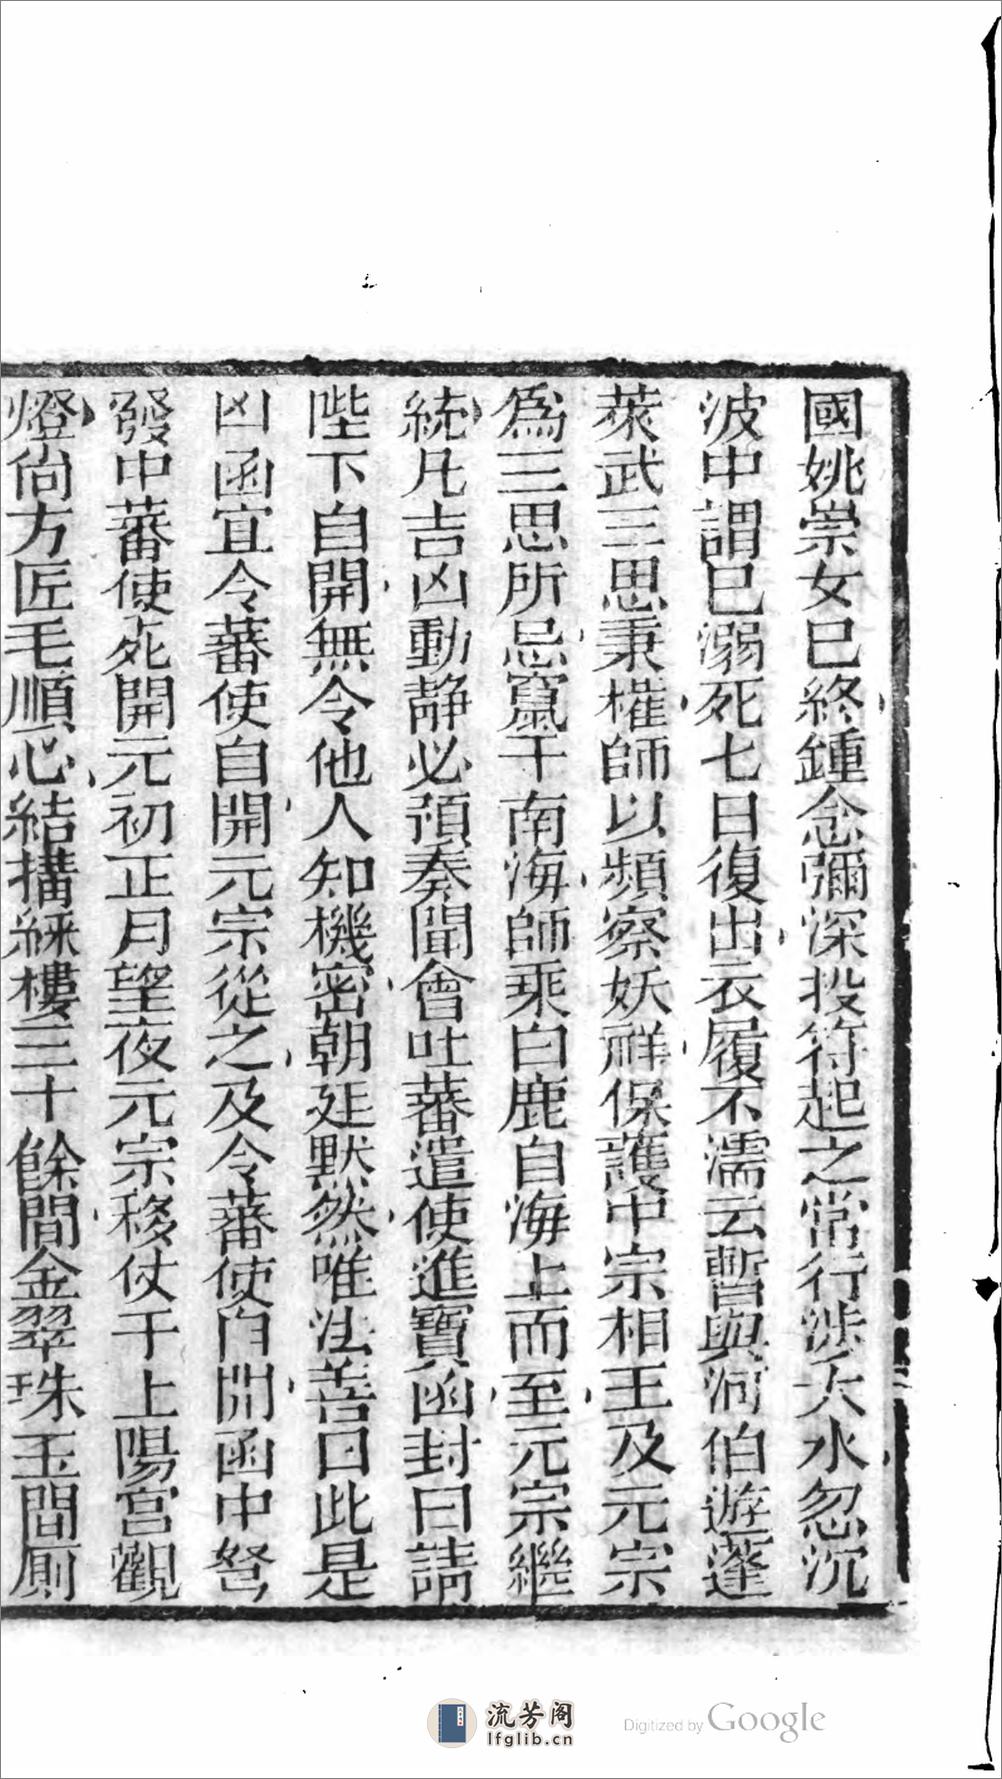 國姚崇女已終鍾念彌深投符起之常行涉大水忽沉
波中謂已溺死七日復出衣履不濡云暫與河伯遊蓬
萊武三思秉權師以頻察妖祥保護中宗相王及元宗
爲三思所忌竄于南海師乘白鹿自海上而至元宗繼
統凡吉凶動靜必預奏聞會吐蕃遣使進寶函封曰請
陛下自開無令他人知機密朝廷默然唯法善曰此是
凶函宜令蕃使自開元宗從之及令蕃使自開函中弩
發中蕃使死開元初正月望夜元宗移仗于上陽宮觀
燈尚方匠毛順心結搆綵樓三十餘間金翠珠玉間厠
流芳阁
lfglib.cn
Digitized by Google